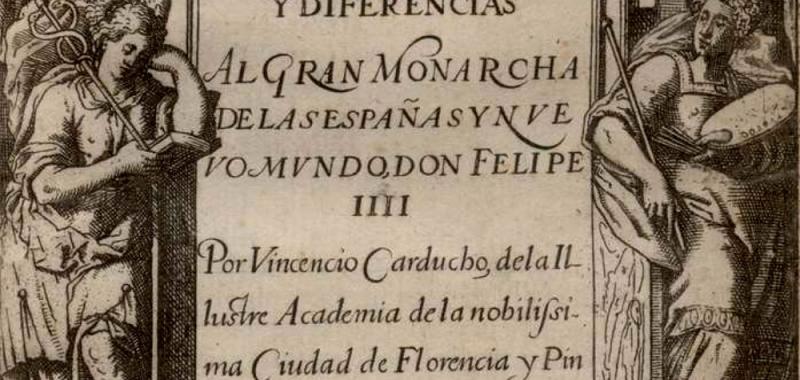 Y DIFERENCIAS
AL GRAN MONARCHA
DE LAS ESPAÑAS Y NVE
VO MVNDO, DON FELIPE
IIII
Por Vincencio Carducho, de la Il-
lustre Academia de la nobiliſsi-
ma Ciudad de Florencia y Pin